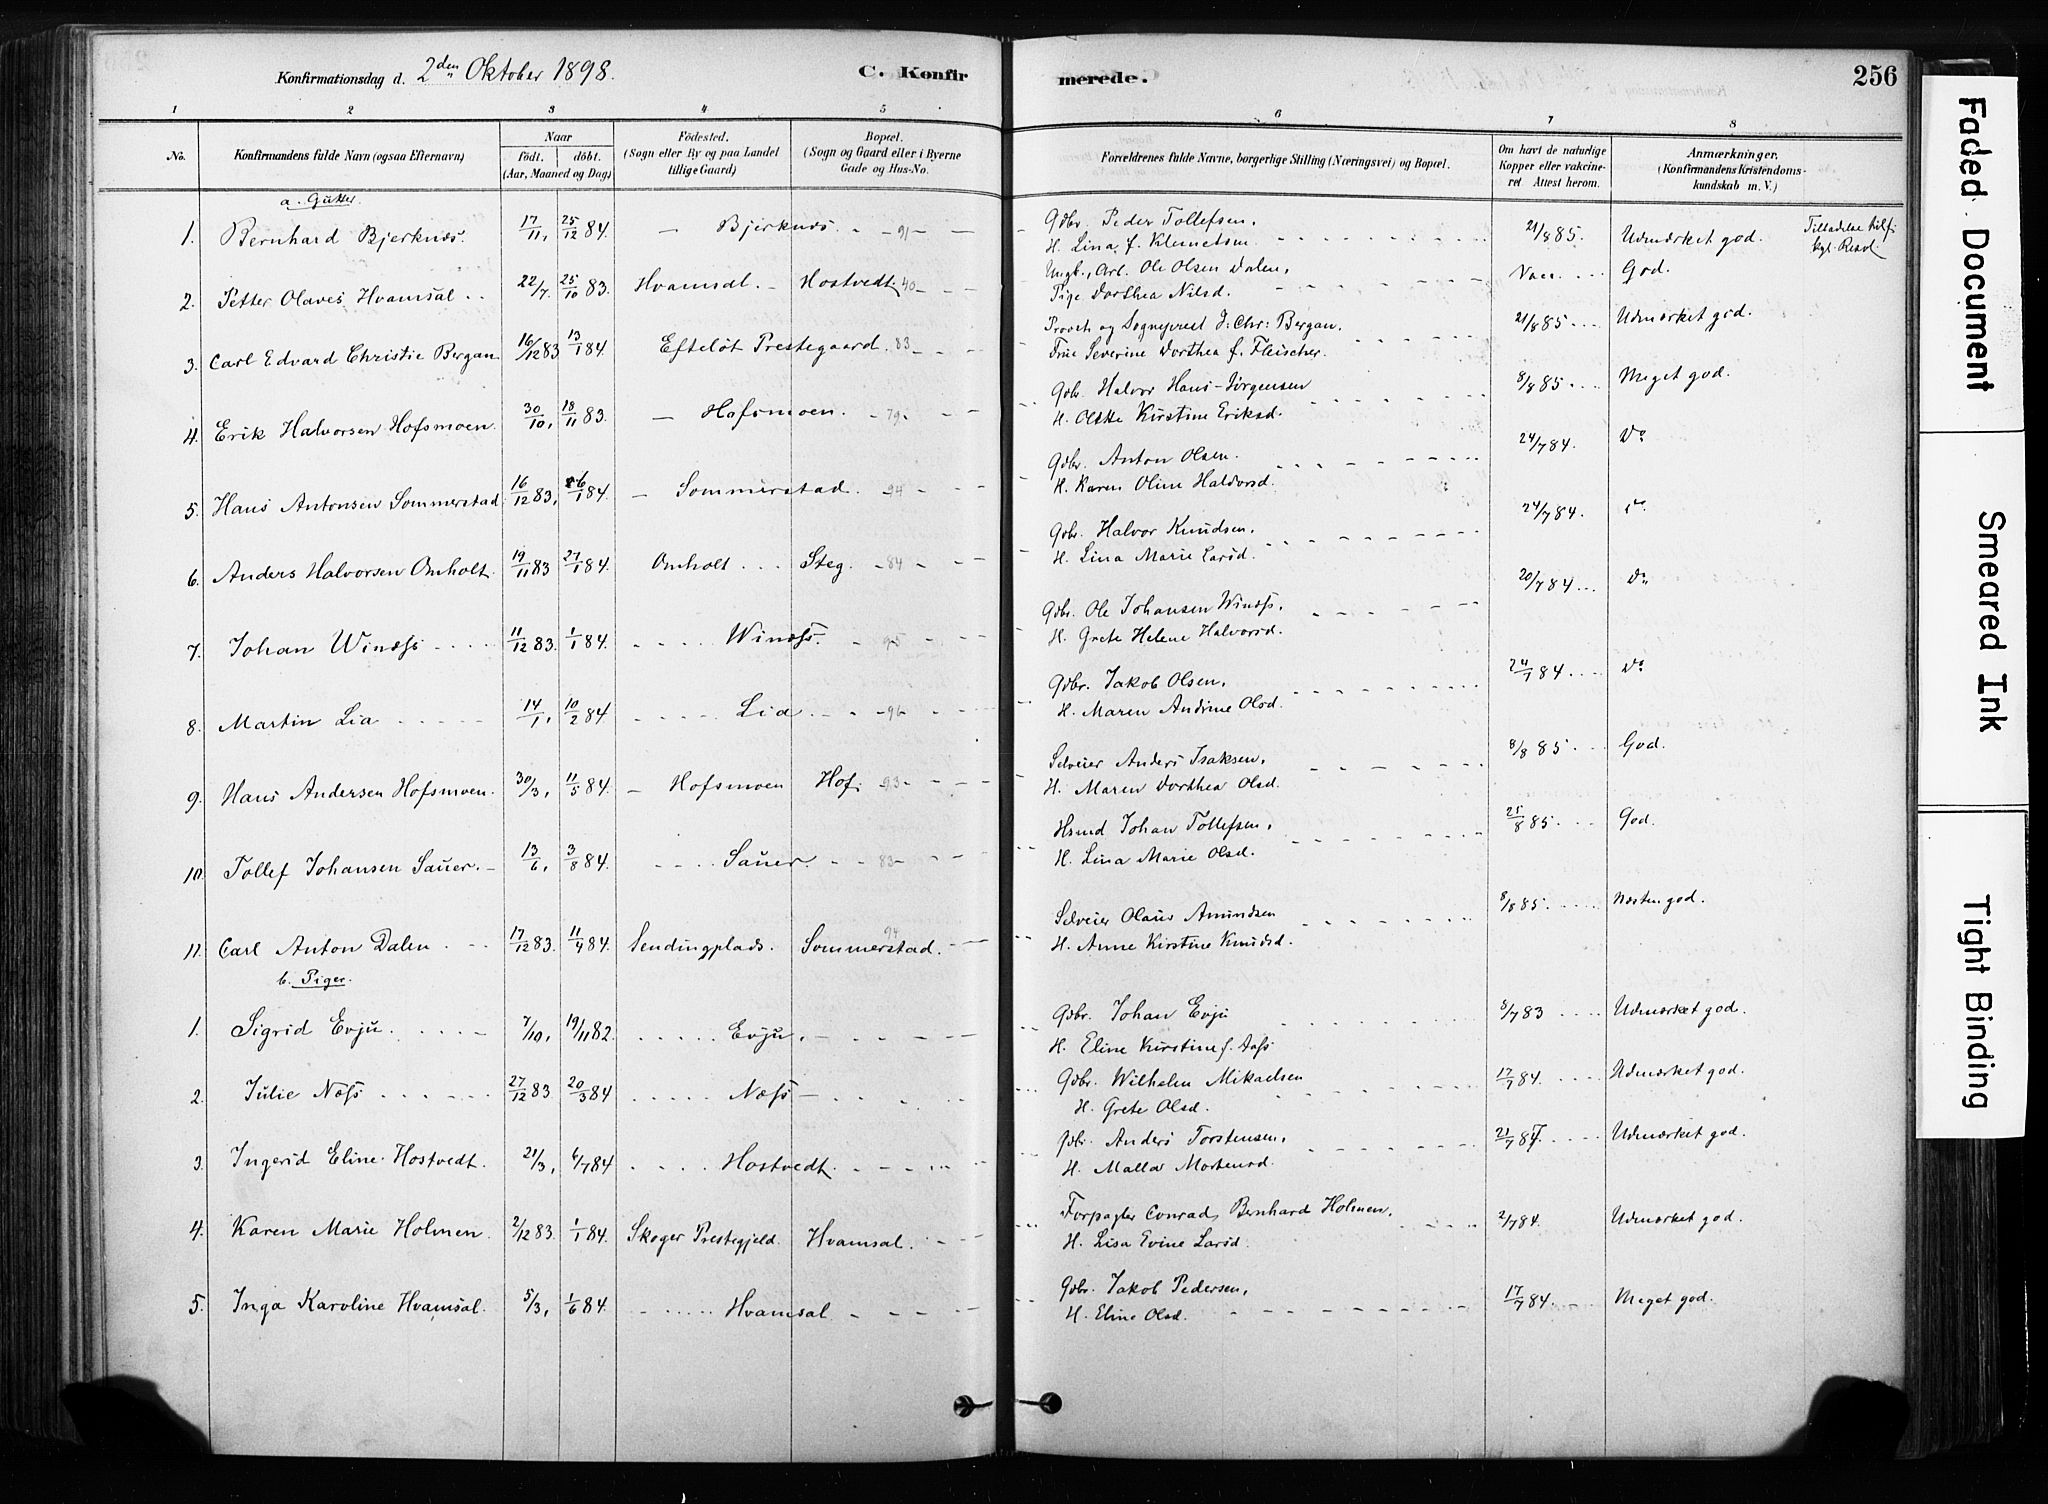 Konfirmationsdag d. 2den Oktober 1898. C. Konfirmerede. 256
1 2 3 4 5 6 7 8
No. Konfirmandens fulde Navn (ogsaa Efternavn) Naar födt. döbt. (Aar, Maaned og Dag) Födested. (Sogn eller By og paa Landet tillige Gaard) Bopæl. (Sogn og Gaard eller i Byerne Gade og Hus-No. Forældrenes fulde Navne, borgerlige Stilling (Næringsvei) og Bopæl. Om havt de naturlige Kopper eller vakcineret. Attest herom. Anmærkninger. (Konfirmandens Kristendomskundskab m. V.)
a. Gutter.
1. Bernhard Bjerknæs. 17/11, 25/12 84. — Bjerknæs. - 91 — Gdbr. Peder Tollefsen, H. Lina f. Klemetsen 21/8 85. Udmærket god. Tilladelse kgl. Resol.
2. Petter Olaves Hvamsal .. 22/7. 25/10 83. Hvamsal. - Hostvedt, 40 - Ungk., Arb. Ole Olsen Dalen, Pige Dorthea Nilsd. Vacc. God.
3. Carl Edvard Christie Bergan 16/12 83 13/1 84. Efteløt Prestegaard. 83 - Provst og Sogneprest J. Chr. Bergan. Frue Severine Dorthea f. Fleischer. 21/8 85 Udmærket god.
4. Erik Halvorsen Hofsmoen. 30/10, 18/11 83. — Hofsmoen. - 79. Gdbr. Halvor Hans-Jørgensen H. Olette Kirstine Eriksd. 8/8 85. Meget god.
5. Hans Antonsen Sommerstad 16/12 83, 6/1 84. — Sommerstad. - 94 - Gdbr. Anton Olsen. H. Karen Oline Halvorsd. 24/7 84. Do
6. Anders Halvorsen Omholt. 19/11 83 27/1 84. Omholt ... Steg. - 84 - Gdbr. Halvor Knudsen, H. Lina Marie Larsd. 24/7 84. do.
7. Johan Winæss 11/12 83. 1/1 84. Winæss. - 95 Gdbr. Ole Johansen Winæss. H. Grete Helene Halvorsd. 20/7 84 ... Do
8. Martin Lia 14/1, 10/2 84. Lia - 96 - Gdbr. Jakob Olsen, H. Maren Andrine Olsd. 24/1 84 Do
9. Hans Andersen Hofsmoen. 30/3, 11/5 84. — Hofsmoen Hof. - 93 - Selveier Anders Isaksen, H. Maren Dorthea Olsd. 8/8 85. God.
10. Tollef Johansen Sauer. - 13/6, 3/8 84. Sauer. - 83 - Hsmd Johan Tollefsen, H. Lina Marie Olsd. 25/8 85. God.
11. Carl Anton Dalen. 17/12 83. 11/4 84. Sendingplads. Sommerstad. 94 Selveier Olaus Amundsen H. Anne Kirstine Knudsd. 8/8 85. Næsten god.
b. Piger.
1. Sigrid Evju. 7/10, 19/11 82. Evju. - Gdbr. Johan Evju H. Eline Kirstine f. Aass 3/7 83 Udmærket god.
2. Julie Næss 27/12 83 20/3 84 Næss - Gdbr. Wilhelm Mikaelsen H. Grete Olsd. 17/7 84. Udmærket god.
3. Ingerid Eline Hostvedt. 21/3, 6/7 84 Hostvedt. Gdbr. Anders Torstensen. H. Malla Mortensd. 21/7 84. Udmærket god.
4. Karen Marie Holmen. 2/12 83. 1/1 84. Skoger Prestegjeld. Hvamsal. - Forpagter Conrad Bernhard Holmen. H. Lisa Evine Larsd. 2/7 84. Udmærket god.
5. Inga Karoline Hvamsal. 5/3, 1/6 84. Hvamsal. - Gdbr. Jakob Pedersen. H. Eline Olsd. 17/7 84. Meget god.
Faded Document
Smeared Ink
Tight Binding